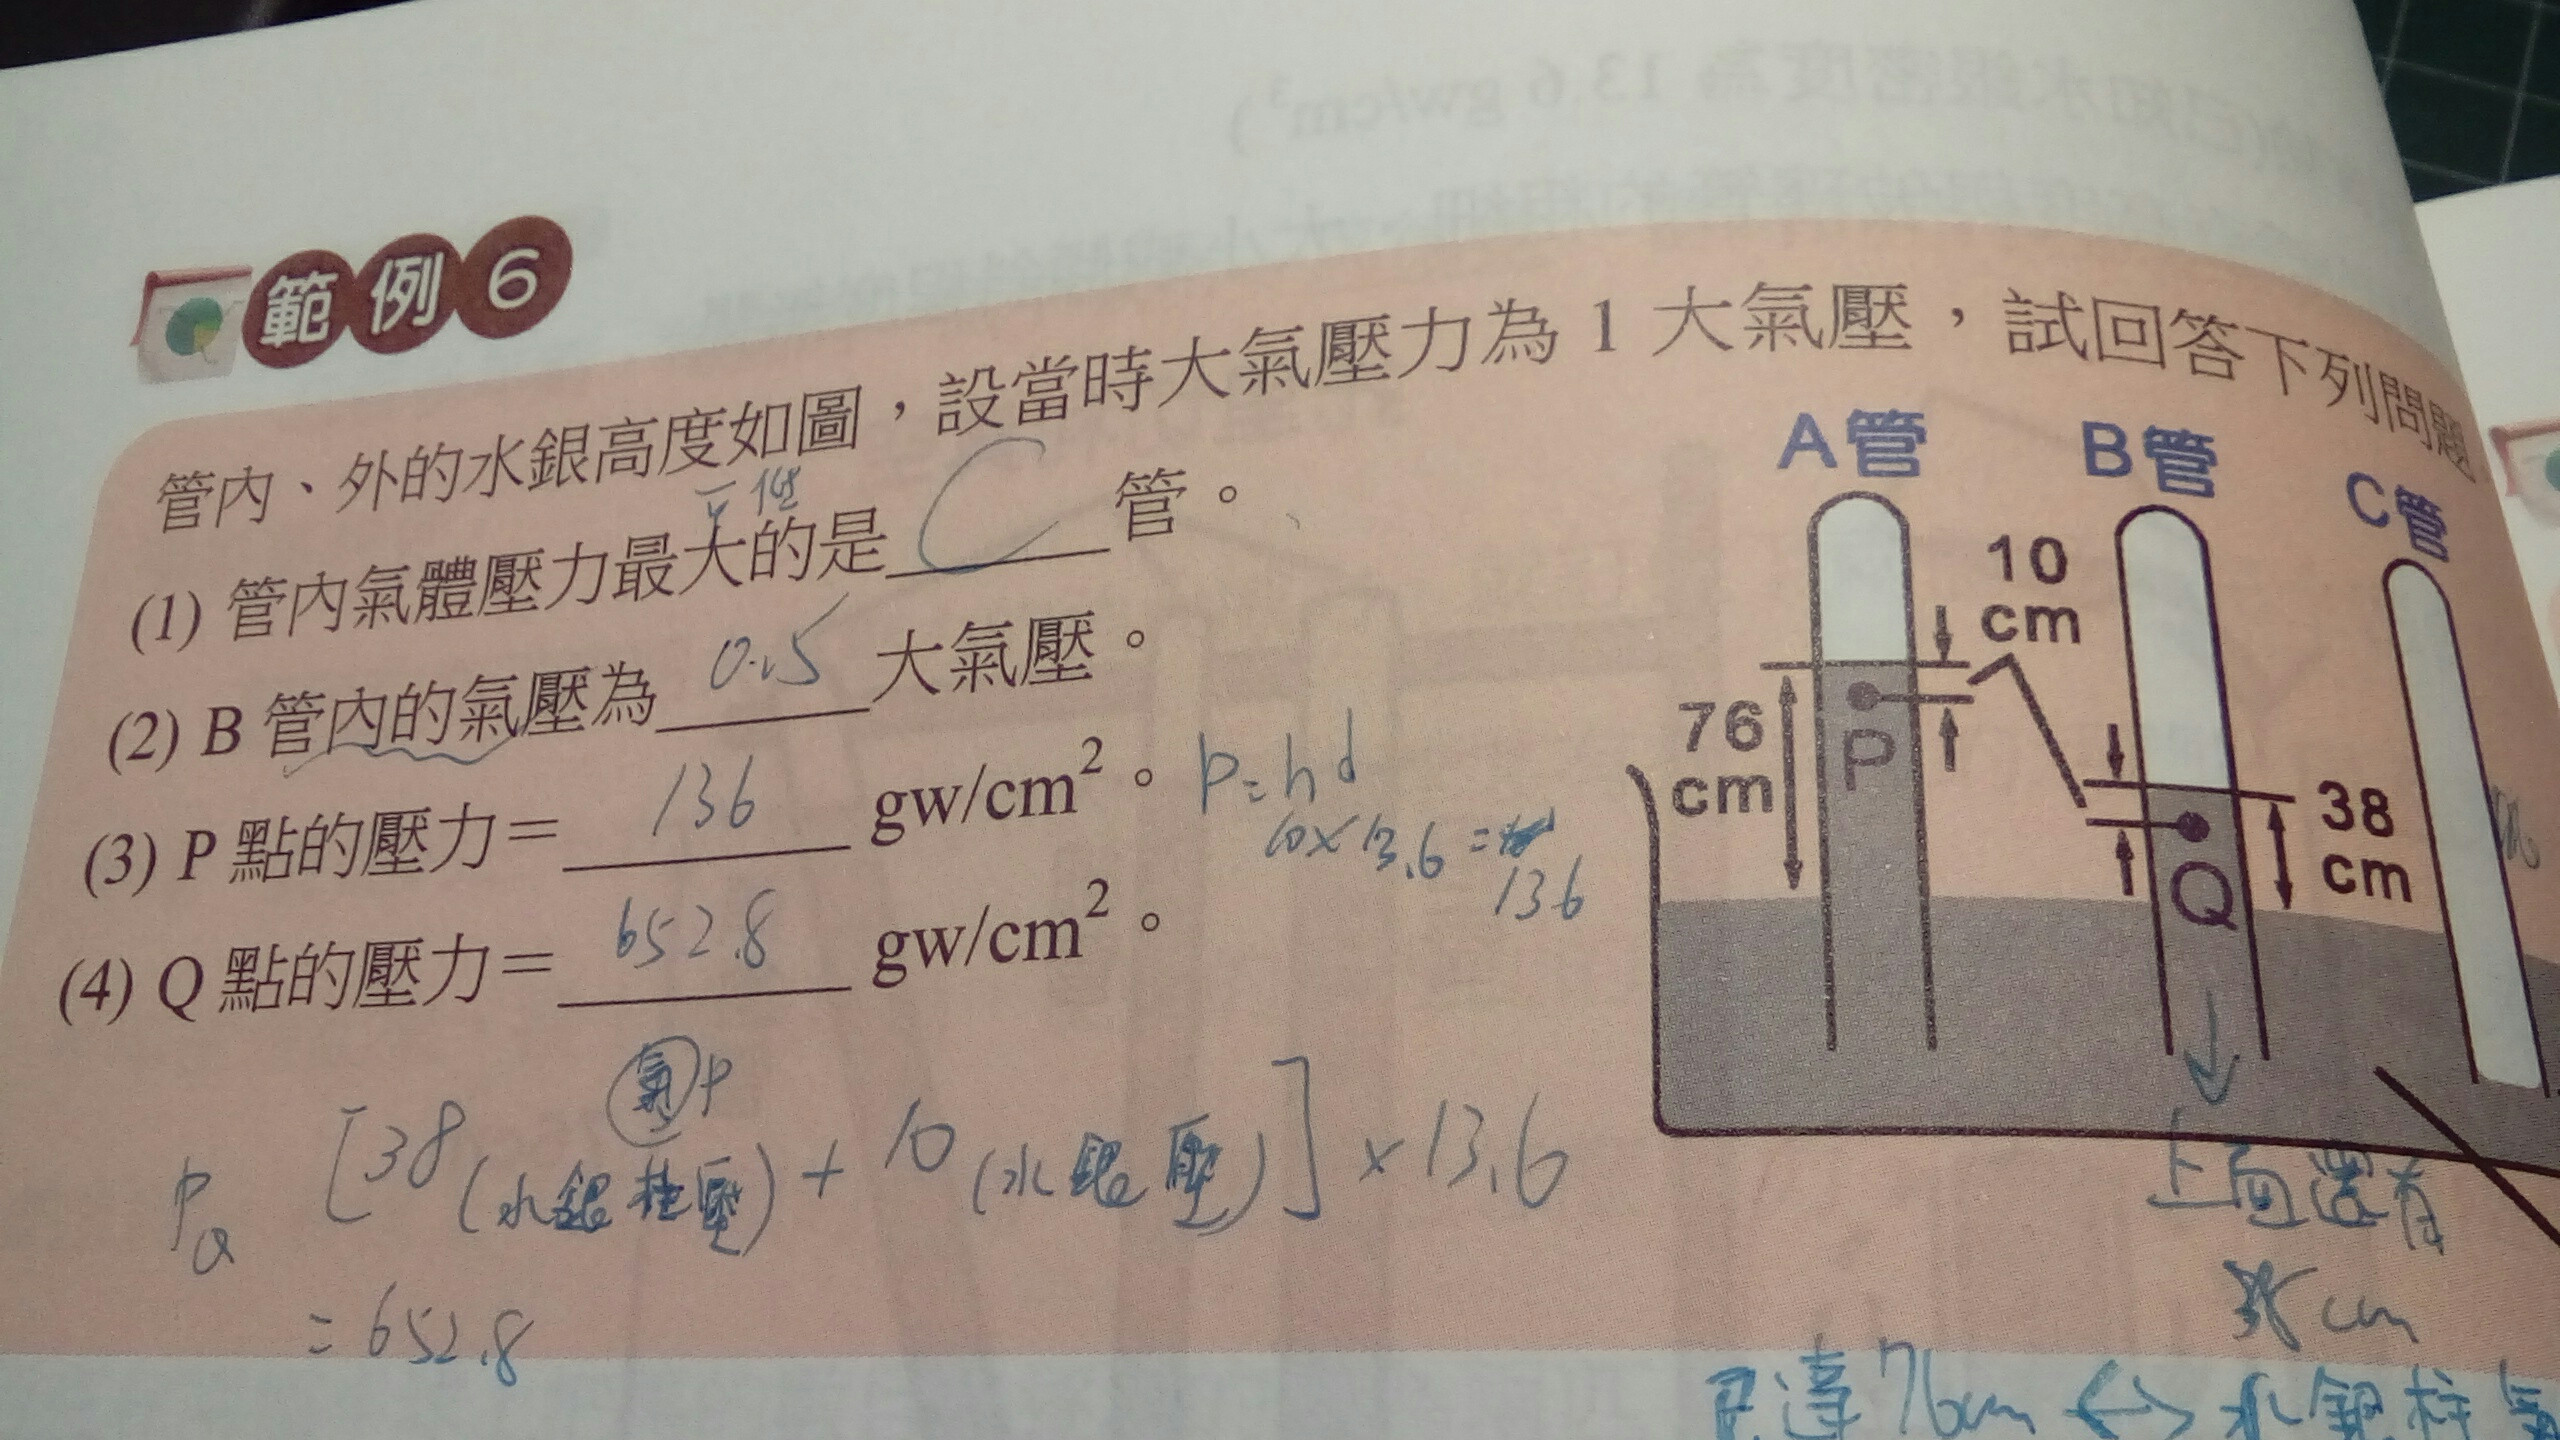 範例6
管內、外的水銀高度如圖，設當時大氣壓力為 1 大氣壓，試回答下列問題
(1) 管內氣體壓力最大的是 C 管。
(2) B 管內的氣壓為 0.5 大氣壓。
(3) P 點的壓力＝ 136 gw/cm²。
(4) Q 點的壓力＝ 652.8 gw/cm²。
P=hd
10×13.6=
136
A管
B管
C管
10
cm
76
cm
P
38
cm
Q
氣P
PQ [38(水銀柱壓)+10(水銀壓)]×13.6
=652.8
上面還有
38cm
76cm ↔ 水銀柱